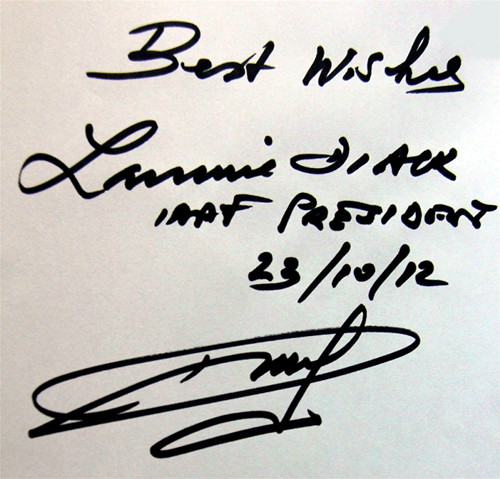 Best Wishes
Lamine DIACK
IAAF PRESIDENT
23/10/12